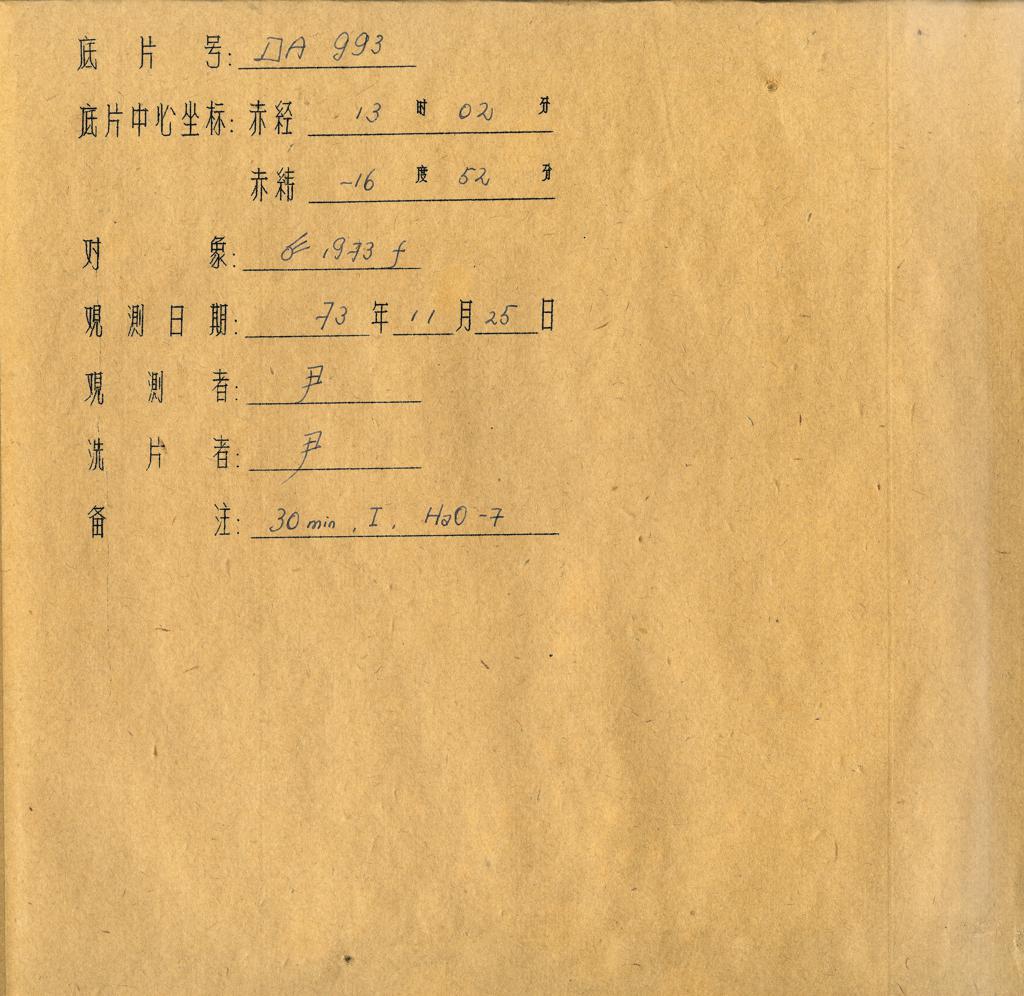 底片号: DA 993
底片中心坐标: 赤经 13 时 02 分
赤纬 -16 度 52 分
对象: 1973 f
观测日期: 73 年 11 月 25 日
观测者: 尹
洗片者: 尹
备注: 30 min, I, HaO-7